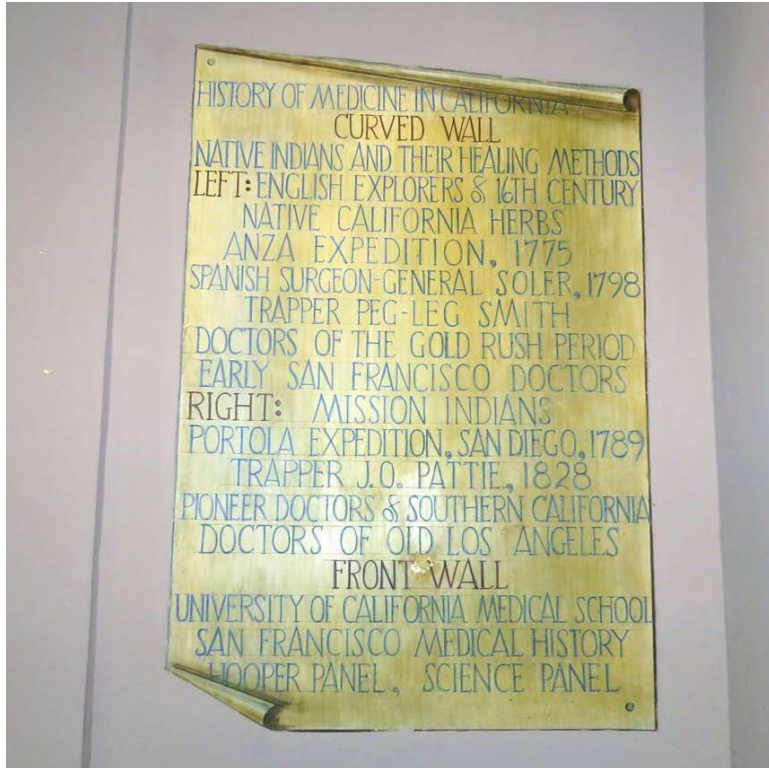 HISTORY OF MEDICINE IN CALIFORNIA
CURVED WALL
NATIVE INDIANS AND THEIR HEALING METHODS
LEFT: ENGLISH EXPLORERS & 16TH CENTURY
NATIVE CALIFORNIA HERBS
ANZA EXPEDITION, 1775
SPANISH SURGEON-GENERAL SOLER, 1798
TRAPPER PEG-LEG SMITH
DOCTORS OF THE GOLD RUSH PERIOD
EARLY SAN FRANCISCO DOCTORS
RIGHT: MISSION INDIANS
PORTOLA EXPEDITION, SAN DIEGO, 1789
TRAPPER J.O. PATTIE, 1828
PIONEER DOCTORS & SOUTHERN CALIFORNIA
DOCTORS OF OLD LOS ANGELES
FRONT WALL
UNIVERSITY OF CALIFORNIA MEDICAL SCHOOL
SAN FRANCISCO MEDICAL HISTORY
HOOPER PANEL, SCIENCE PANEL